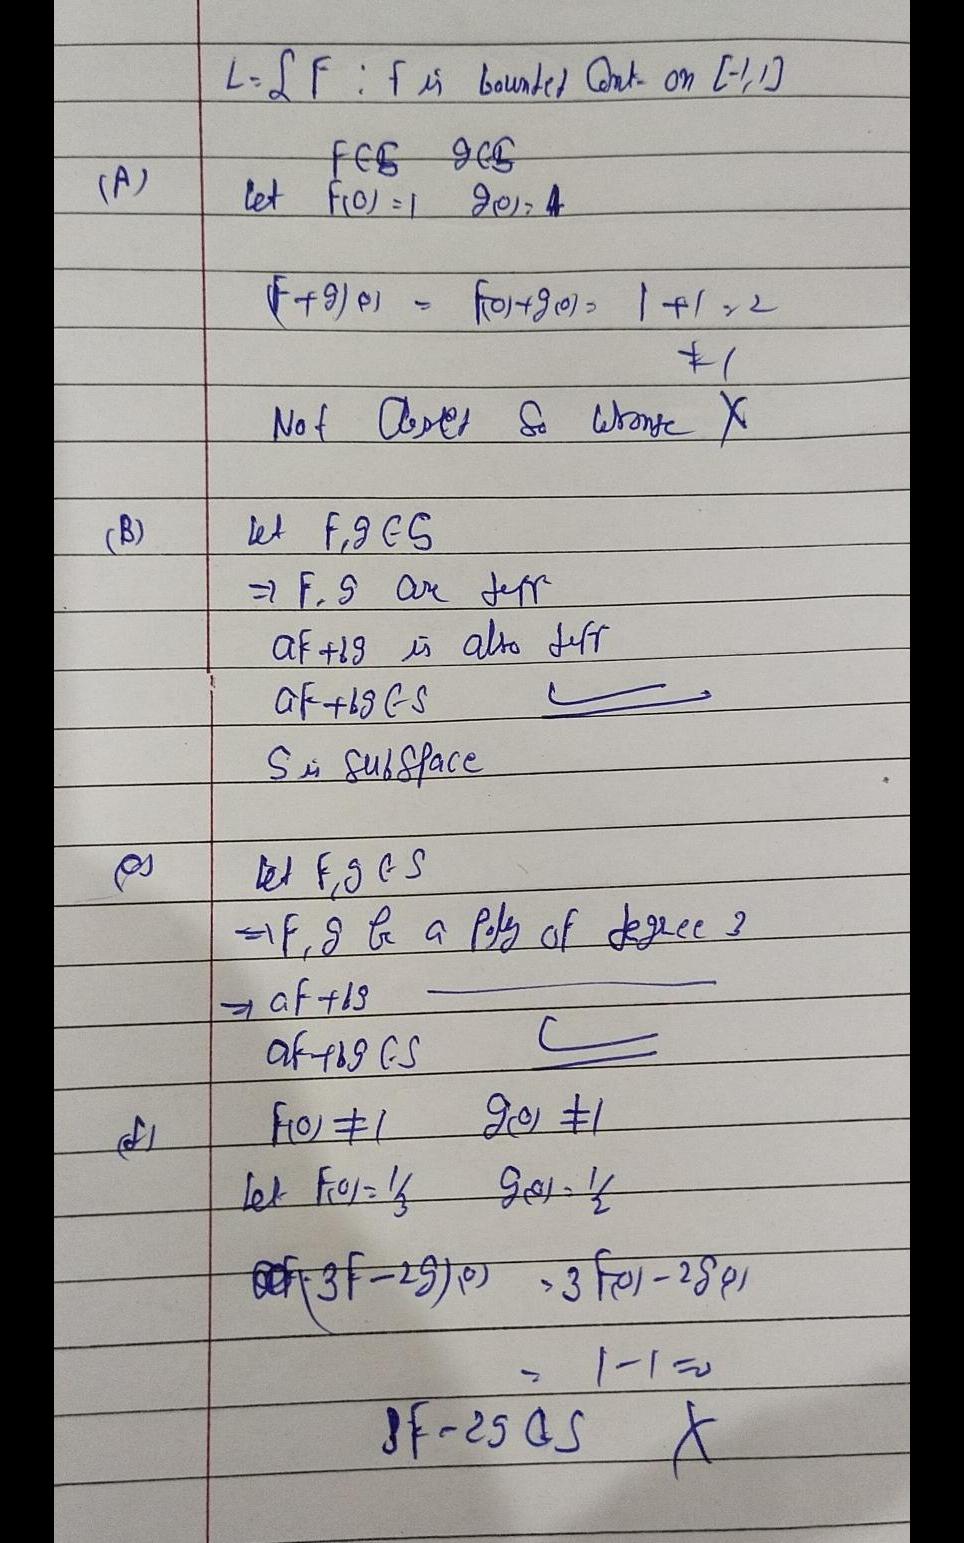 L = { F : f is bounded Cont. on [-1,1]
F∈S g∈S
(A) let F(0) = 1 g(0) = 1
(F+g)(0) = F(0)+g(0) = 1+1 = 2
≠ 1
Not Closed So Wrong X
(B) let F,g ∈ S
⇒ F, g are diff
aF+bg is also diff
aF+bg ∈ S
S is subspace
(c) let F,g ∈ S
⇒ F, g be a Poly of degree 3
⇒ aF+bg
aF+bg ∈ S
(d) F(0) ≠ 1 g(0) ≠ 1
let F(0) = 1/3 g(0) = 1/2
(3F-2g)(0) = 3F(0) - 2g(0)
= 1-1 = 0
3F-2g ∈ S X